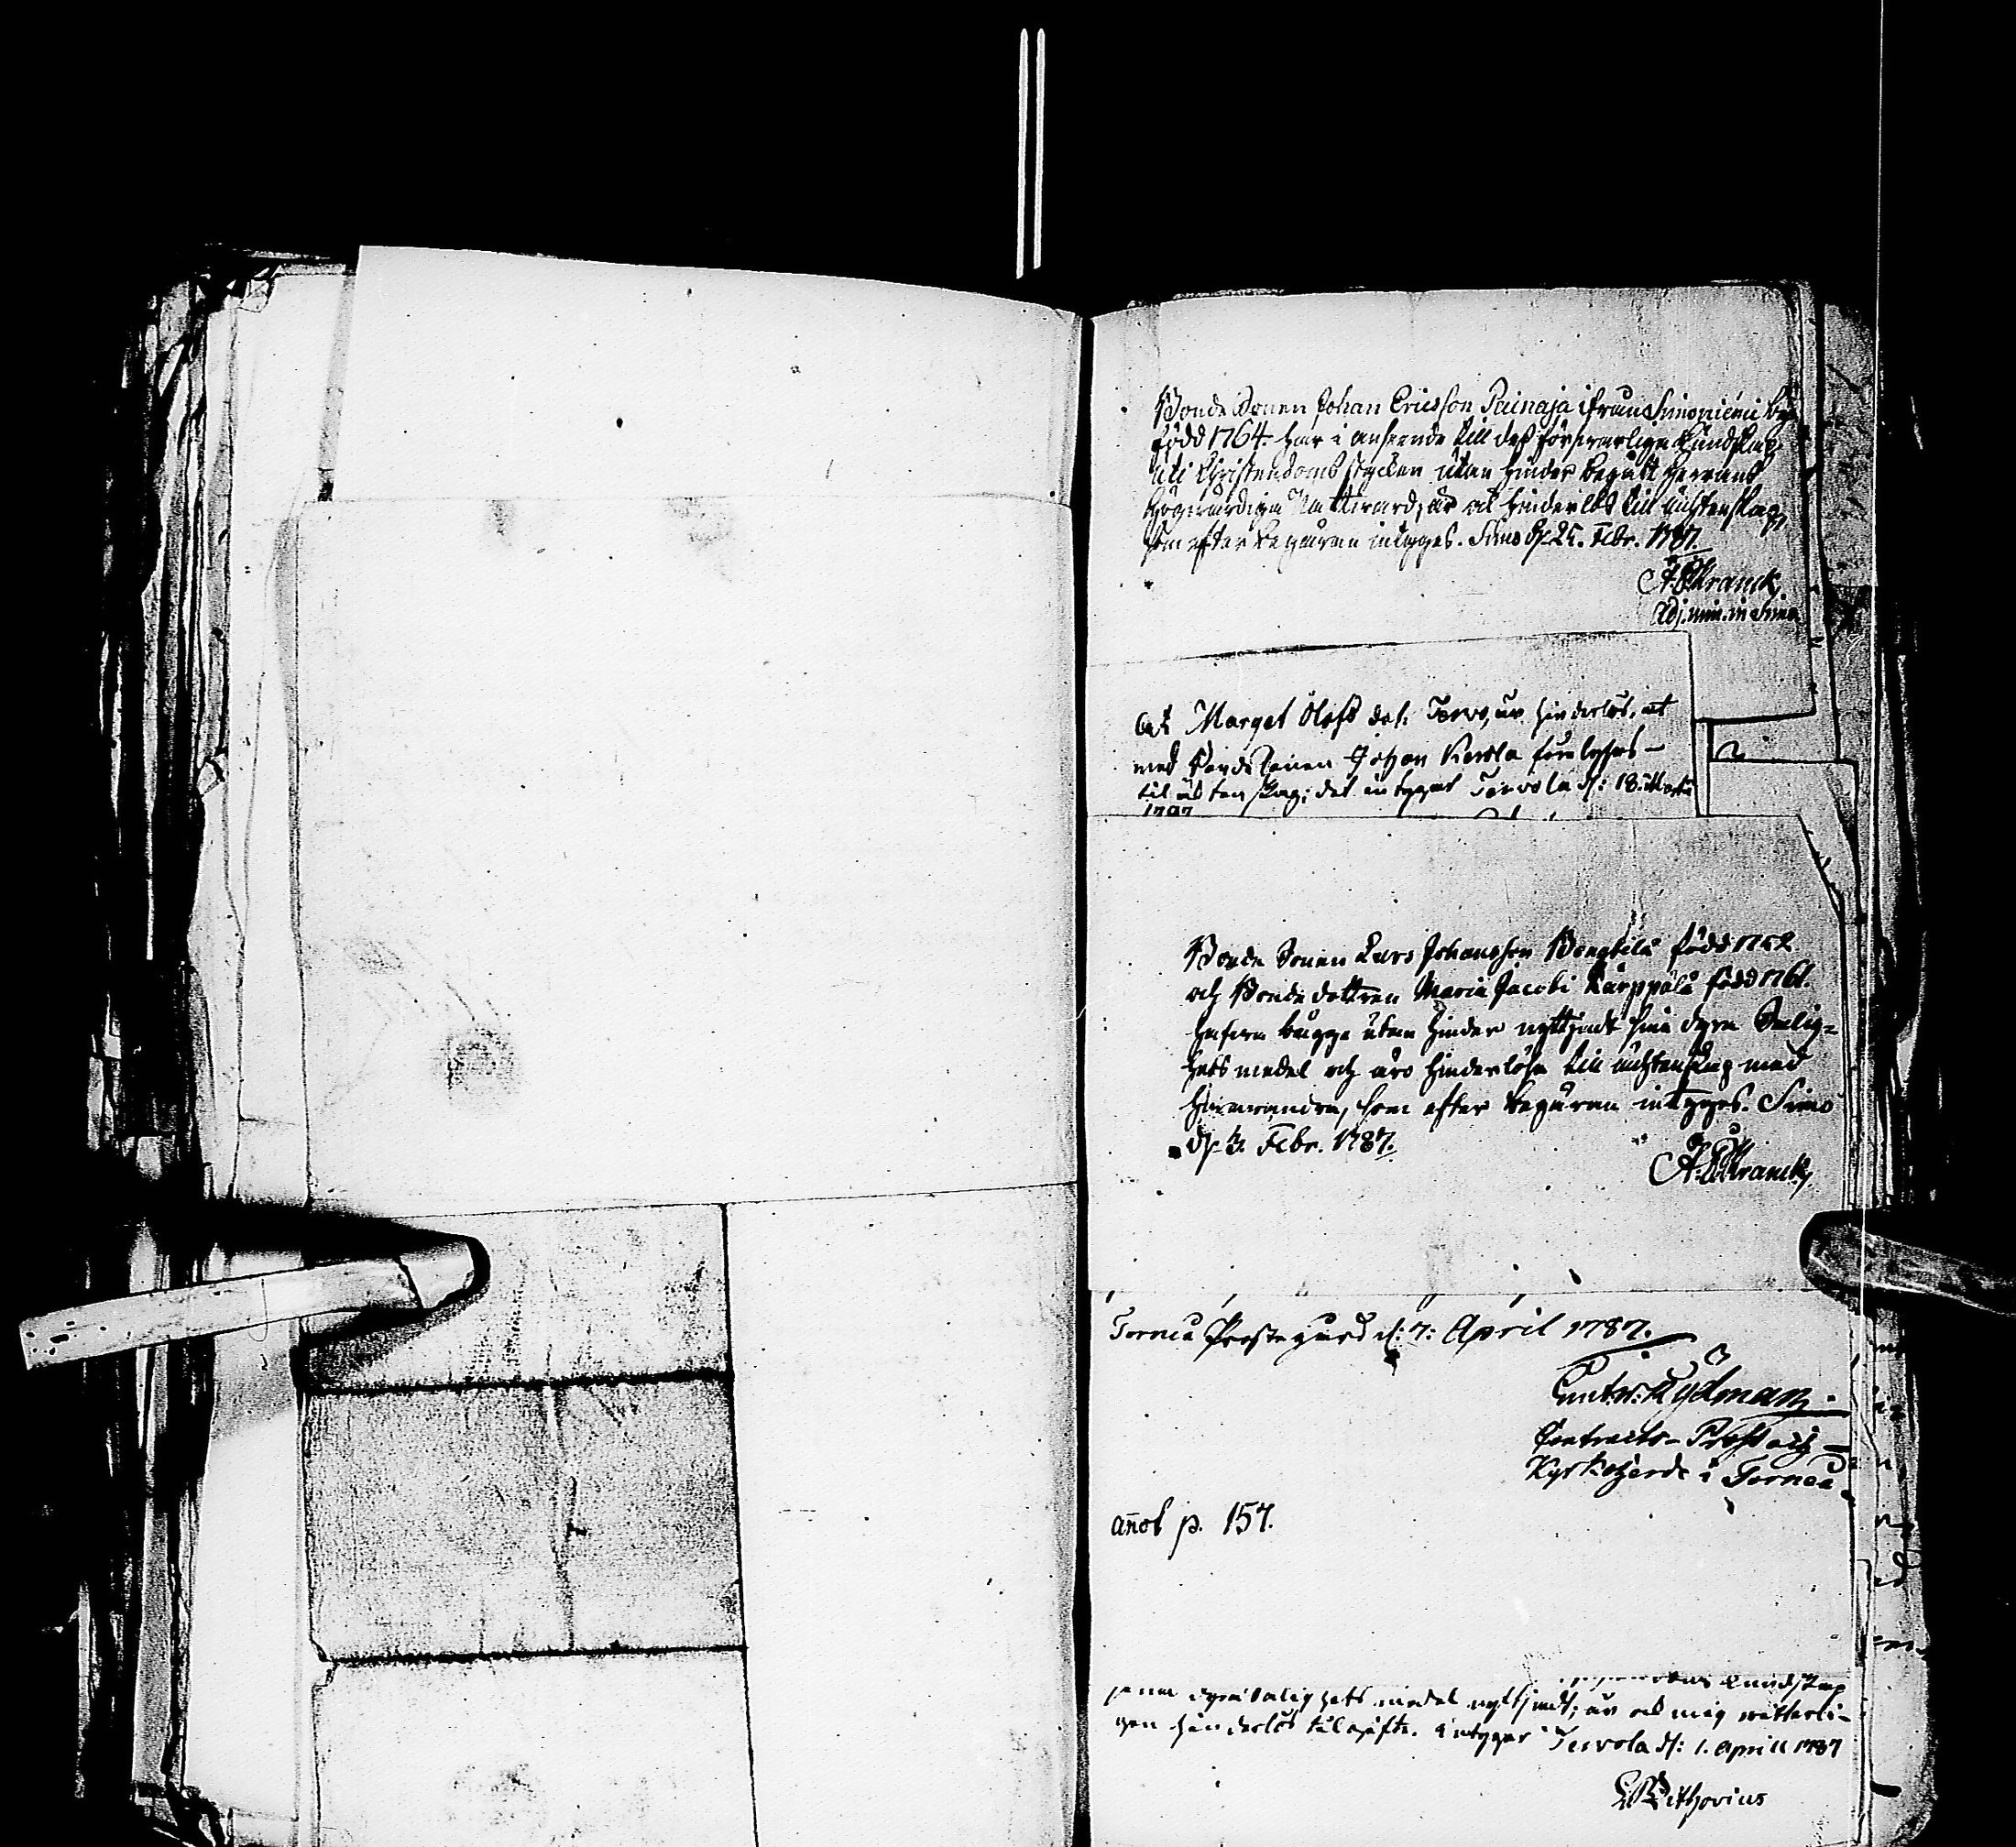 Bonde Sonen Johan Ericsson Painaja ifrån Simoniemi by
född 1764. har i anseende till dess försvarliga kundskap
uti Christendoms stycken utan hinder begått Herrans
Högvärdiga Nattvard, är ock hinderlös till ächtenskap,
som efter begäran intygas. Simo d. 25. Febr. 1787.
Kranck
Adj. min. in Simo
At Marget Olofs dot: Tervo, är hinderlös, at
med bonde Sonen Johan Kerola före lysas
til äktenskap; det intygat Tervola d: 18. Martii
1787
Bonde Sonen Lars Johansson född 1752
och Bonde dottren Maria Jacobi Kärppälä född 1761.
hafva bägge utan hinder nyttjadt sina dyra Salig=
hets medel och äro hinderlöse till ächtenskap med
hvarandra, som efter begäran intygas. Simo
d. 3. Febr. 1787.
Kranck
Torneå Prostegård d: 7: April 1787.
Contracts-Prost och
Kyrkoherde i Torneå
anot p. 157.
kundskap
dyra Salighets medel nyttjadt; är ock mig witterli-
gen hinderlös til gifte. intygar Tervola d: 1. April 1787